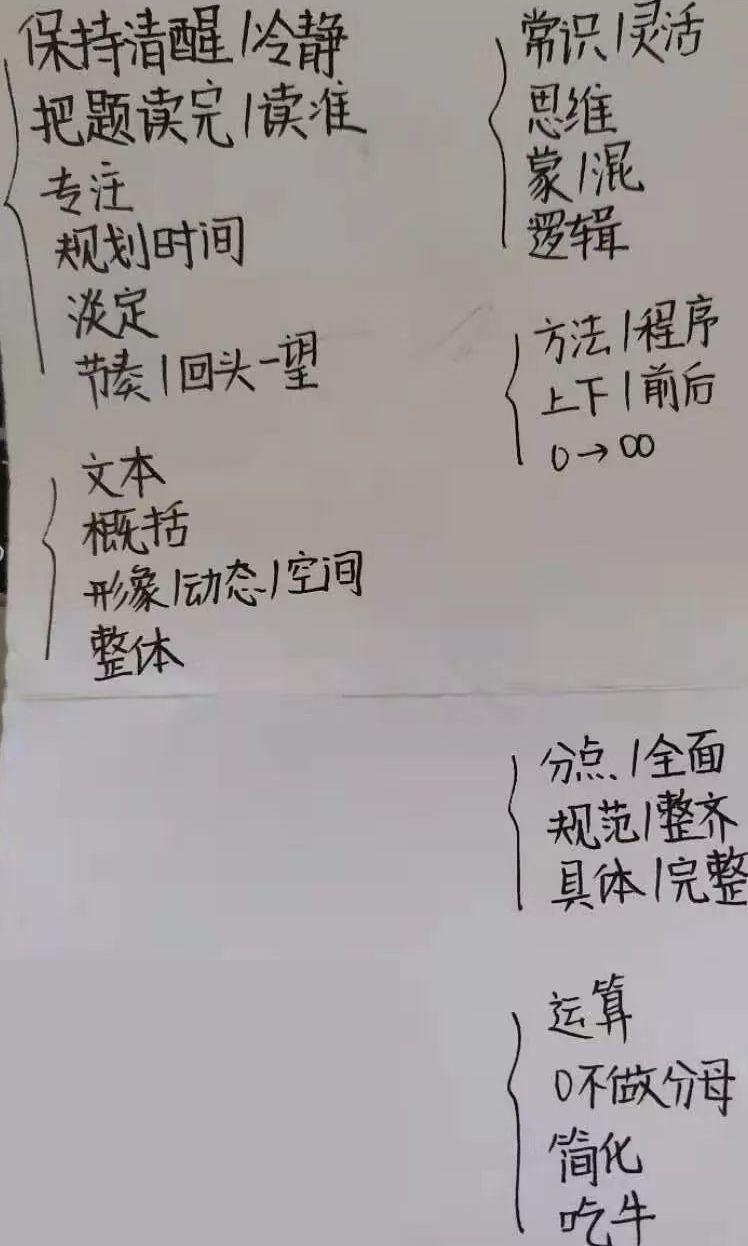 保持清醒|冷静
把题读完|读准
专注
规划时间
淡定
节奏|回头一望
文本
概括
形象|动态|空间
整体
常识|灵活
思维
蒙|混
逻辑
方法|程序
上下|前后
0→∞
分点|全面
规范|整齐
具体|完整
运算
0不做分母
简化
吃牛